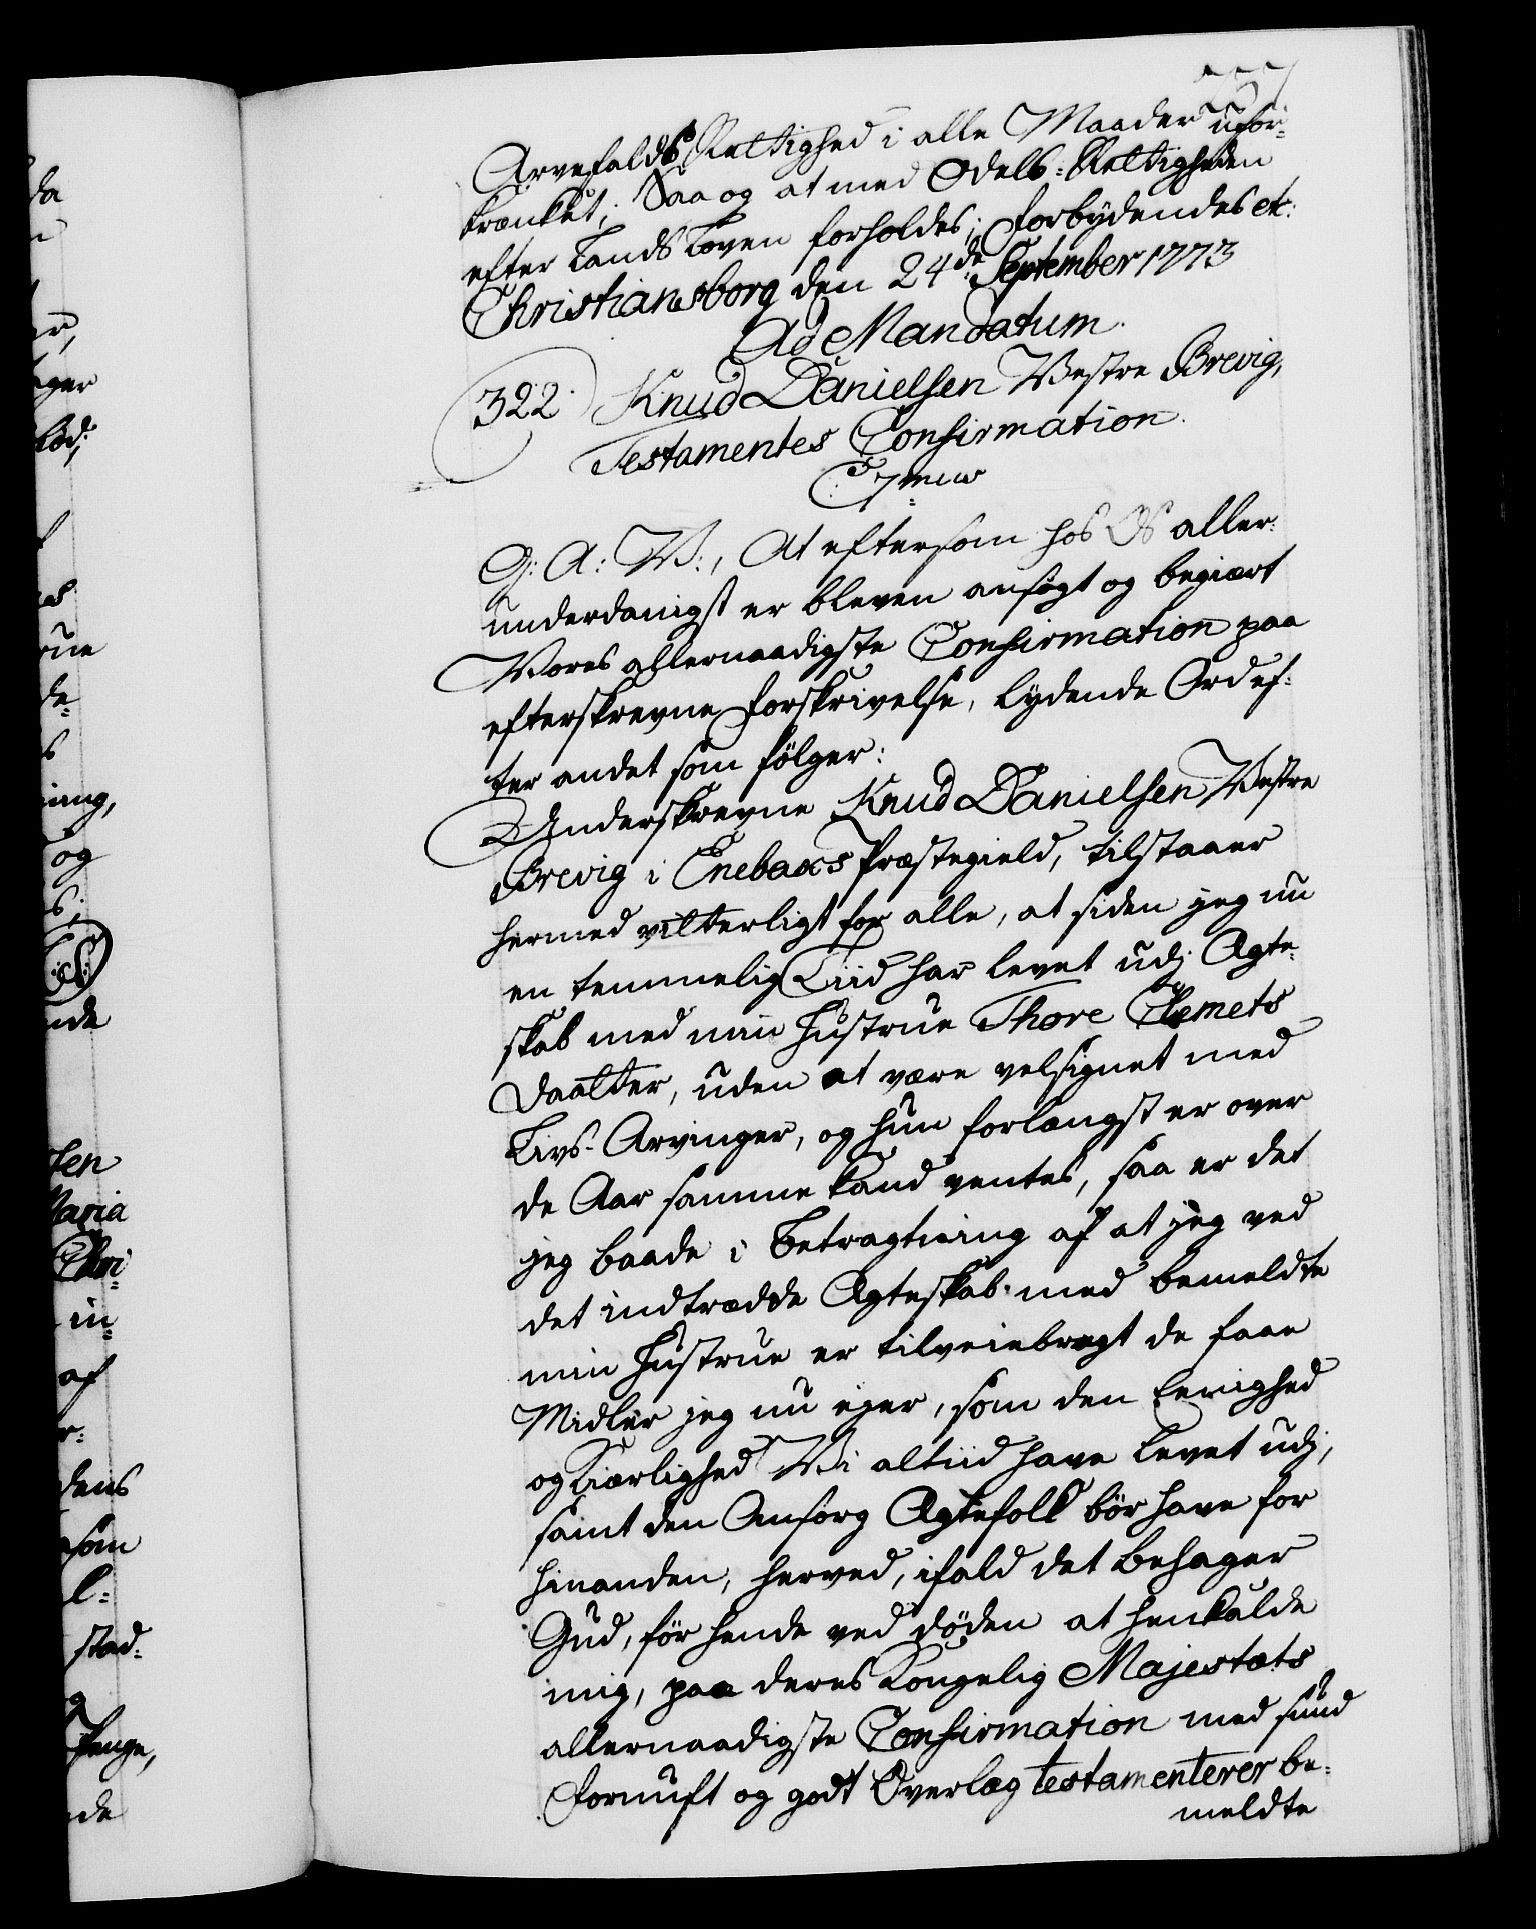 Arvefalds Rettighed i alle Maader ufor-
krænket; Saa og at med Odels-Rettigheden
efter Lands Loven forholdes; Forbydendes etc:
Christiansborg den 24de September 1773
Ad Mandatum.
322. Knud Danielsen Westre Brevig,
Testamentes Confirmation.
G: A: W:, At eftersom hos Os aller-
underdanigst er bleven ansøgt og begiært
Vores allernaadigste Confirmation paa
efterskrevne Forskrivelse, lydende Ord ef-
ter andet som følger:
Underskrevne Knud Danielsen Westre
Brevig i Enebaks Præstegield, tilstaaer
hermed vitterligt for alle, at siden jeg nu
en temmelig Tiid har levet udj Ægte-
skab med min Hustrue Thore Clemets
Daatter, uden at være velsignet med
Livs-Arvinger, og hun forlængst er over
de Aar samme kand ventes, saa er det
jeg baade i Betragtning af at jeg ved
det indtrædde Ægteskab med bemeldte
min Hustrue er tilveiebragt de faae
Midler jeg nu ejer, som den Eenighed
og Kiærlighed Vi altiid have levet udj,
samt den Omsorg Ægtefolk bør have for
hinanden, herved, ifald det behager
Gud, før hende ved døden at henkalde
mig, paa deres Kongelig Majestæts
allernaadigste Confirmation med sund
Fornuft og godt Overlæg testamenterer be-
meldte
da
er,
ger
bød;
rue
de-
ning,
og
nde
sen
Maria
Chri-
in-
af
dens
som
l-
stad-
Penge,
de